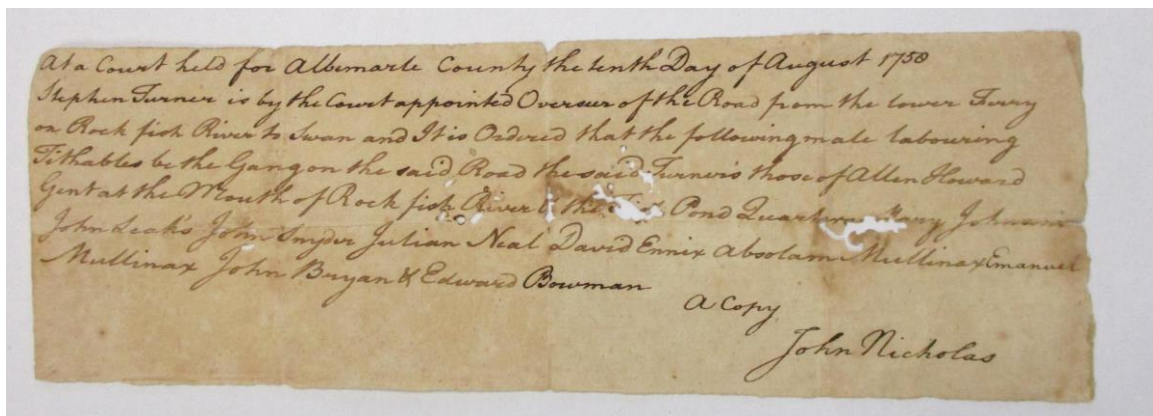 At a Court held for Albemarle County the tenth Day of August 1758
Stephen Turner is by the Court appointed Overseer of the Road from the lower Ferry
on Rock fish River to Swan and It is Ordered that the following male labouring
Tithables be the Gang on the said Road the said Turners those of Allen Howard
Gent at the Mouth of Rock fish River & the Pond Quarter Mary Johnsons
John Leak's John Snyder Julian Neal David Ennix Absolam Mullinax Emanuel
Mullinax John Bryan & Edward Bowman
A Copy
John Nicholas